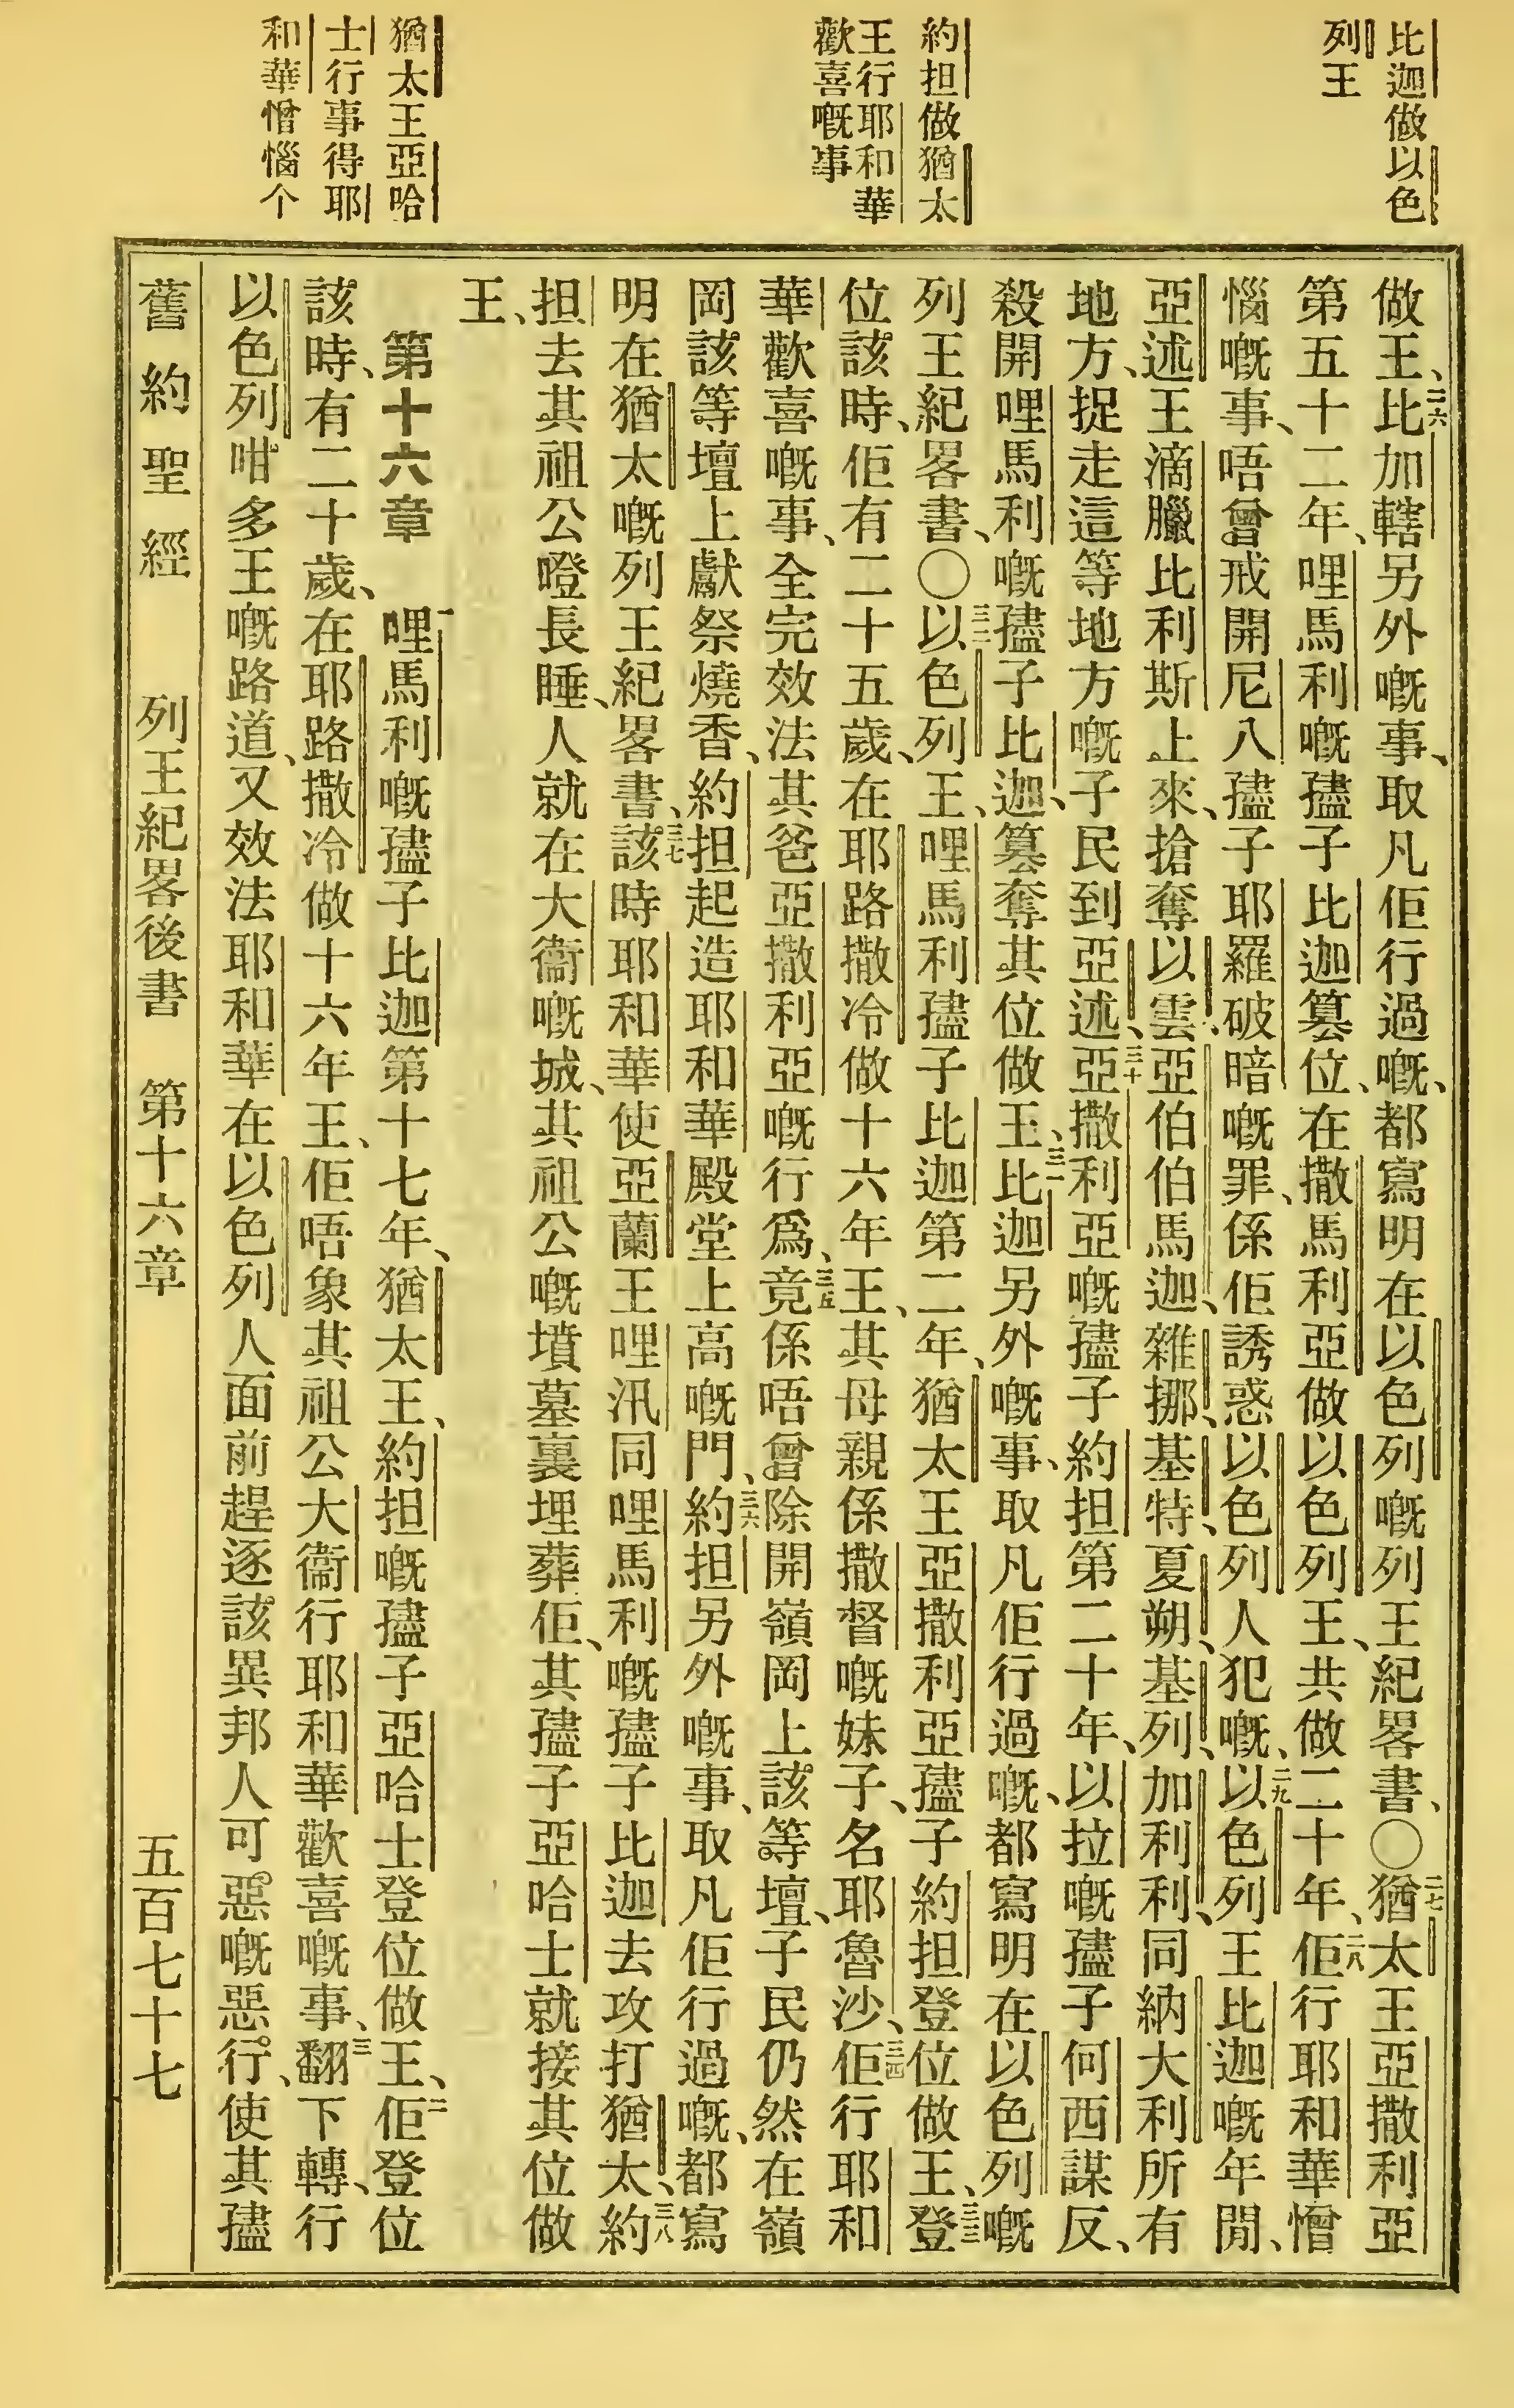 比迦做以色
列王
約担做猶太
王行耶和華
歡喜嘅事
猶太王亞哈
士行事得耶
和華憎惱个
做王、二六比加轄另外嘅事、取凡佢行過嘅、都寫明在以色列嘅列王紀畧書、〇二七猶太王亞撒利亞
第五十二年、哩馬利嘅孻子比迦篡位、在撒馬利亞做以色列王、共做二十年、二八佢行耶和華憎
惱嘅事、唔曾戒開尼八孻子耶羅破暗嘅罪、係佢誘惑以色列人犯嘅、二九以色列王比迦嘅年間、
亞述王滴臘比利斯上來、搶奪以雲、亞伯伯馬迦、雜挪、基特、夏朔、基列、加利利、同納大利所有
地方、捉走這等地方嘅子民到亞述、三十亞撒利亞嘅孻子約担第二十年、以拉嘅孻子何西謀反、
殺開哩馬利嘅孻子比迦、篡奪其位做王、三一比迦另外嘅事、取凡佢行過嘅、都寫明在以色列嘅
列王紀畧書、〇三二以色列王、哩馬利孻子比迦第二年、猶太王亞撒利亞孻子約担登位做王、三三登
位該時、佢有二十五歲、在耶路撒冷做十六年王、其母親係撒督嘅妹子、名耶魯沙、三四佢行耶和
華歡喜嘅事、全完效法其爸亞撒利亞嘅行爲、三五竟係唔曾除開嶺岡上該等壇、子民仍然在嶺
岡該等壇上獻祭燒香、約担起造耶和華殿堂上高嘅門、三六約担另外嘅事、取凡佢行過嘅、都寫
明在猶太嘅列王紀畧書、三七該時耶和華使亞蘭王哩汛同哩馬利嘅孻子比迦去攻打猶太、三八約
担去其祖公嶝長睡、人就在大衞嘅城、其祖公嘅墳墓裏埋葬佢、其孻子亞哈士就接其位做
王、
第十六章　一哩馬利嘅孻子比迦第十七年、猶太王、約担嘅孻子亞哈士登位做王、二佢登位
該時、有二十歲、在耶路撒冷做十六年王、佢唔象其祖公大衞行耶和華歡喜嘅事、三翻下轉、行
以色列咁多王嘅路道、又效法耶和華在以色列人面前趕逐該異邦人可惡嘅惡行、使其孻
舊約聖經　列王紀畧後書　第十六章　五百七十七